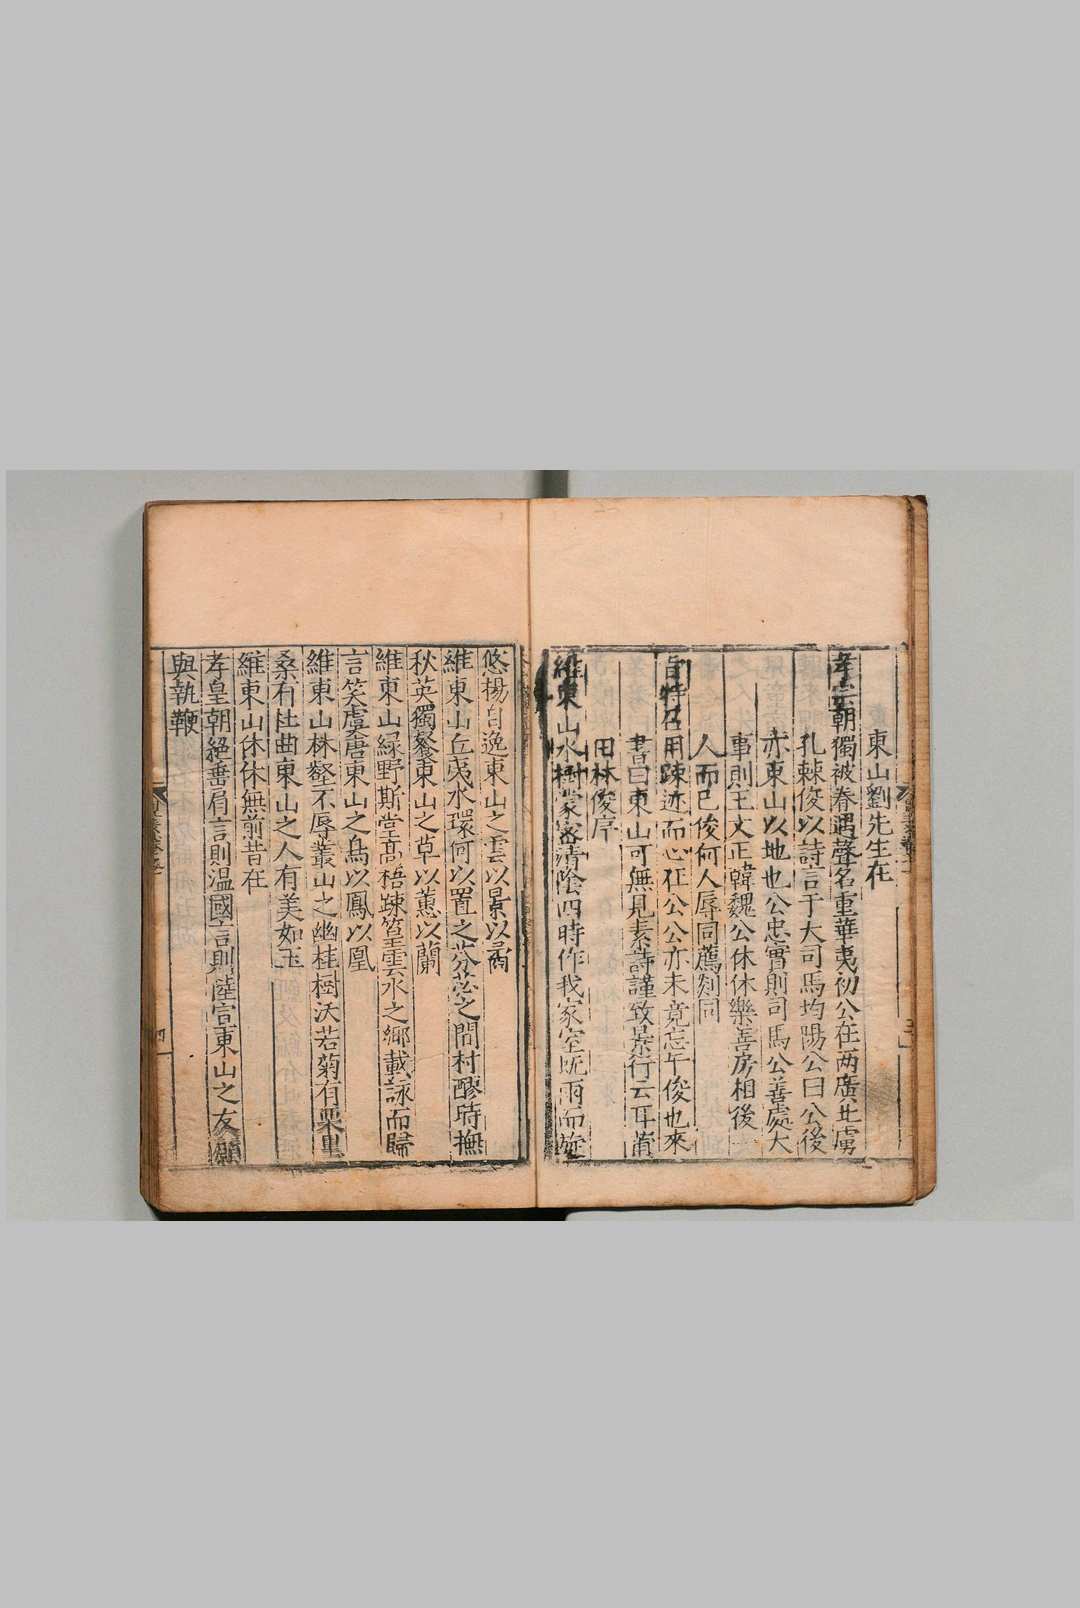 東山劉先生在
孝宗朝獨被眷遇聲名重華夷初公在两廣北虜
孔棘俊以詩言于大司馬均陽公曰公後
亦東山以地也公忠實則司馬公善處大
事則王文正韓魏公休休樂善房相後一
人而已俊何人辱同薦剡同
旨特召用踈迹而心在公公亦未竟忘年俊也來
書曰東山可無見素詩謹致景行云耳莆
田林俊序
維東山水樹蒙密清陰四時作我家室旣雨而旋
悠揚自逸東山之雲以景以矞
維東山丘夷水環何以置之芬苾之間村醪時撫
秋英獨餐東山之草以蕙以蘭
維東山綠野斯堂高梧踈篁雲水之鄉載詠而歸
言笑虞唐東山之鳥以鳳以凰
維東山株壑不辱叢山之幽桂樹沃若菊有栗里
桑有杜曲東山之人有美如玉
維東山休休無前昔在
孝皇朝絕垂肩言則温國言則陸宣東山之友願
與執鞭
四